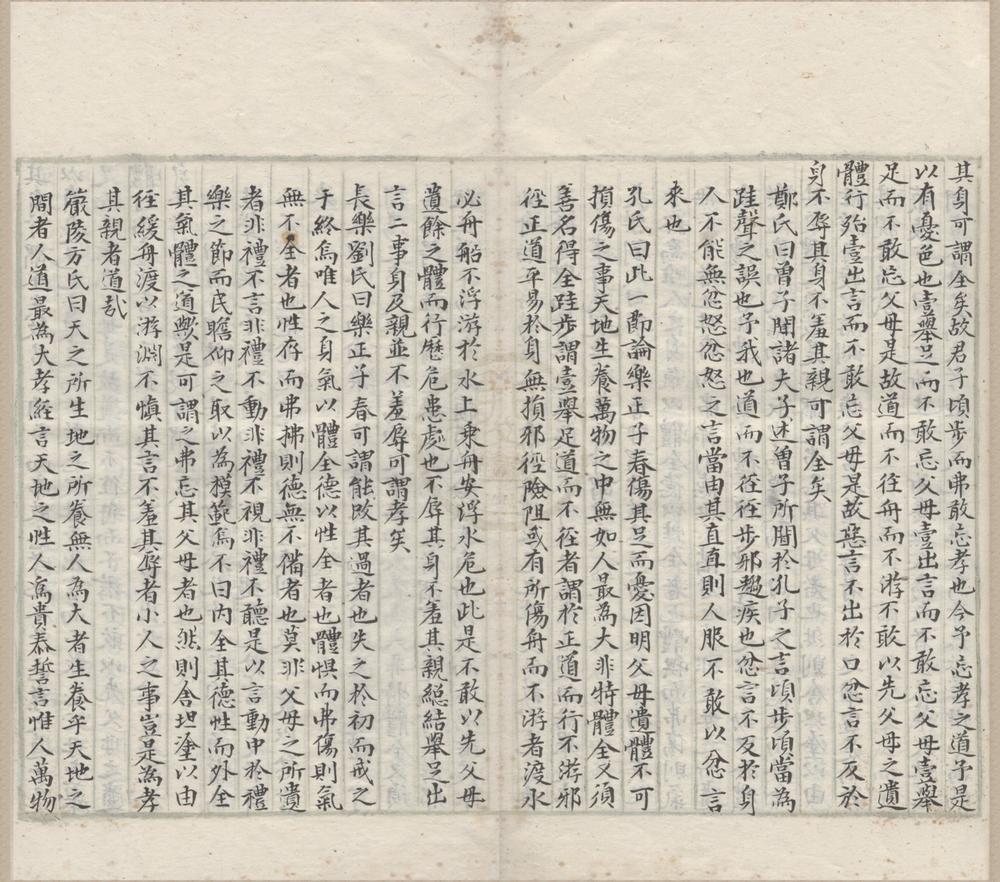 其身可謂全矣故君子頃步而弗敢忘孝也今予忘孝之道予是
以有憂色也壹舉足而不敢忘父母壹出言而不敢忘父母壹舉
足而不敢忘父母是故道而不徑舟而不游不敢以先父母之遺
體行殆壹出言而不敢忘父母是故惡言不出於口忿言不反於
身不辱其身不羞其親可謂全矣
鄭氏曰曾子聞諸夫子述曾子所聞於孔子之言頃步頃當為
跬聲之誤也予我也道而不徑徑步邪趨疾也忿言不反於身
人不能無忿怒忿怒之言當由其直直則人服不敢以忿言
來也
孔氏曰此一節論樂正子春傷其足而憂因明父母遺體不可
損傷之事天地生養萬物之中無如人最為大非特體全又須
善名得全跬步謂壹舉足道而不徑者謂於正道而行不游邪
徑正道平易於身無損邪徑險阻或有所傷舟而不游者渡水
必舟船不浮游於水上乗舟安浮水危也此是不敢以先父母
遺餘之體而行歴危患處也不辱其身不羞其親總結舉足出
言二事身及親並不羞辱可謂孝矣
長樂劉氏曰樂正子春可謂能改其過者也失之於初而戒之
于終焉唯人之身氣以體全德以性全者也體惧而弗傷則氣
無不全者也性存而弗拂則德無不偹者也莫非父母之所遺
者非禮不言非禮不動非禮不視非禮不聽是以言動中於禮
樂之節而民瞻仰之取以為模範焉不曰内全其德性而外全
其氣體之道歟是可謂之弗忘其父母者也然則舎坦塗以由
徑緩舟渡以游淵不慎其言不羞其辱者小人之事豈是為孝
其親者道哉
嚴陵方氏曰天之所生地之所養無人為大者生養乎天地之
間者人道最為大孝經言天地之性人為貴泰誓言惟人萬物